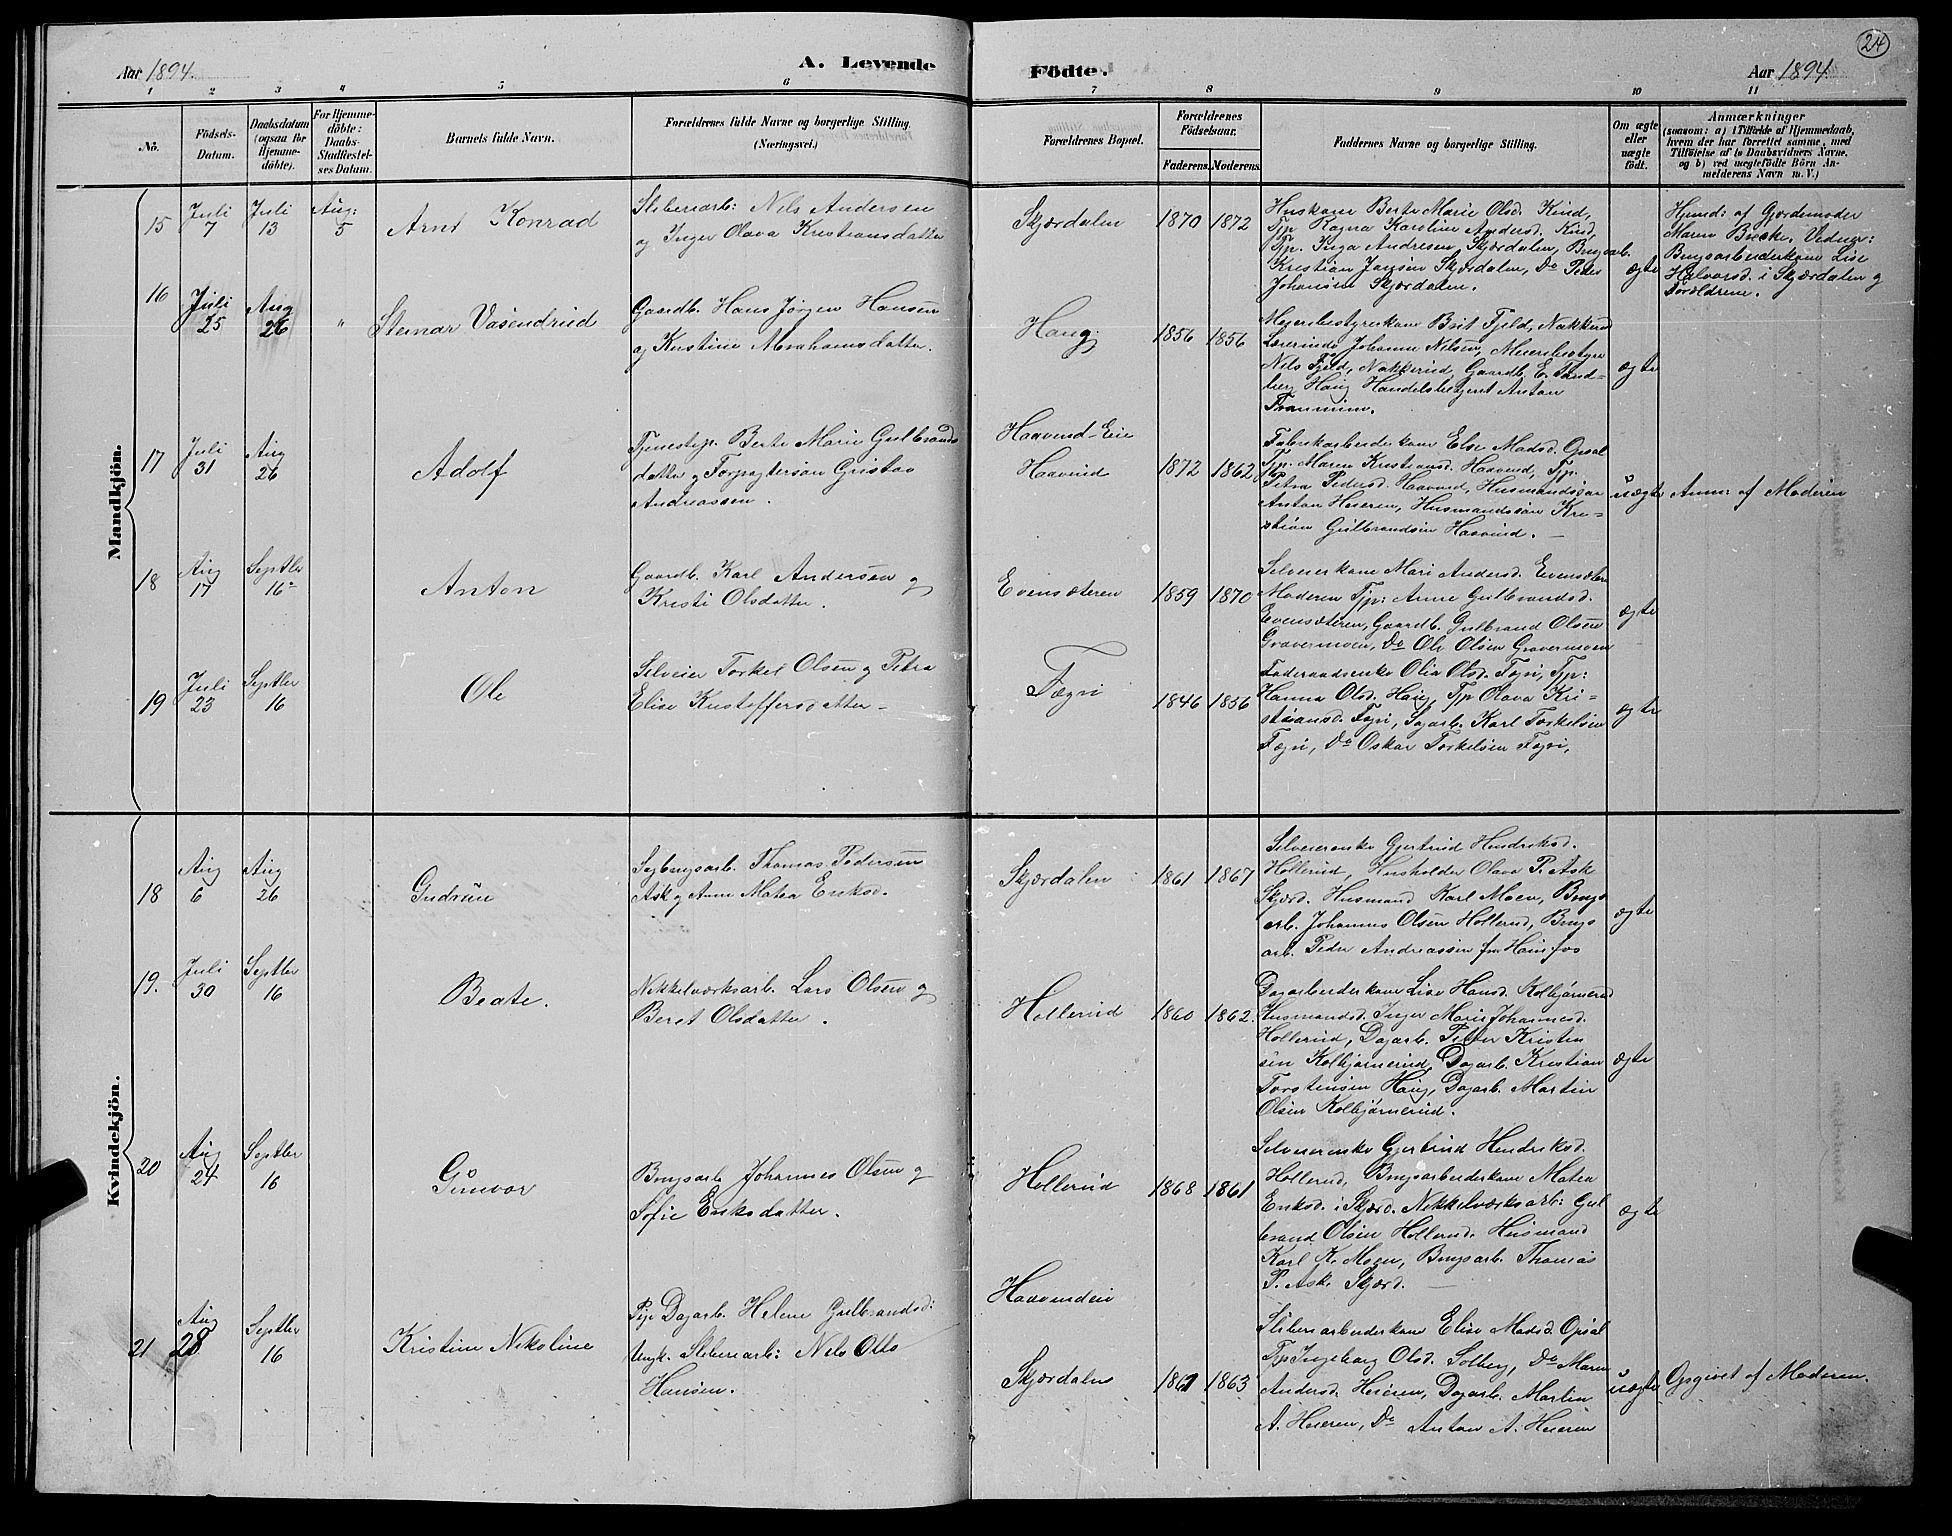 Aar 1894.
A. Levende Födte.
Aar 1894.
24
1 2 3 4 5 6 7 8 9 10 11
No.
Födsels-Datum.
Daabsdatum (ogsaa for Hjemmedöbte).
For Hjemmedöbte: Daabs-Stadfæstelses Datum.
Barnets fulde Navn.
Forældrenes fulde Navne og borgerlige Stilling.
(Næringsvei.)
Forældrenes Bopæl.
Forældrenes Födselsaar.
Faderens. Moderens.
Faddernes Navne og borgerlige Stilling.
Om ægte eller uægte födt.
Anmærkninger
(saasom: a) i Tilfælde af Hjemmedaab,
hvem der har forrettet samme, med
Tilföielse af to Daabsvidners Navne,
og b) ved uægtefödte Börn Anmelderens Navn m. V.)
Mandkjön.
15 Juli 7 Juli 13 Aug: 5
Arnt Konrad
Sliberiarb: Nils Andersen
og Inger Olava Kristiansdatter
Skjærdalen
1870 1872
Huskone Berte Marie Olsd. Kind,
Tjp Ragna Karoline Andersd. Kind,
Tjp. Inga Andresen Skjærdalen, Brugsarb.
Kristian Jansen Skjærdalen, Do Peder
Johansen Skjærdalen.
ægte
Hjmd: af Gjordemoder
Maren Brecke. Vidner:
Brugsarbeiderkone Lise
Halvorsd. i Skjærdalen og
Forældrene.
16 Juli 25 Aug 26 "
Steinar Vasendrud
Gaardb. Hans Jørgen Hansen
og Kristine Abrahamsdatter.
Haug
1856 1856
Meieribestyrerkone Brit Fjeld, Nakkerud
Lærerinde Johanne Nilsen, Meieribestyrer
Nils Fjeld, Nakkerud, Gaardb. E. Thandberg Haug Handelsbetjent Anton
ægte
17 Juli 31 Aug 26
Adolf
Tjenestep. Berte Marie Gulbrandsdatter og Forpagtersøn Gustav
Andreassen.
Haavind-Eie
Haavind
1872 1862
Fabrikarbeiderkone Else Madsd. Opsal
Tjp. Maren Kristiansd. Haavind, Tjp.
Petra Pedersd. Haavind, Husmandssøn
Anton Heieren, Husmandssøn Kristian Gulbrandsen Haavind.
uægte
Anm: af Moderen
18 Aug 17 Septber 16
Anton
Gaardb. Karl Andersen og
Kristi Olsdatter.
Evensæteren
1859 1870
Selveierkone Mari Andersd. Evensæteren
Moderen Tjp: Anne Gulbrandsd.
Evensæteren, Gaardb. Gulbrand Olsen
Gravermoen, Do Ole Olsen Gravermoen
ægte
19 Juli 23 Septber 16
Ole
Selveier Torkel Olsen og Petra
Elise Kristoffersdatter
Fægri
1846 1856
Føderaadsenke Olia Olsd. Fægri, Tjp:
Hanna Olsd. Haug, Tjp Olava Kristiansd. Fægri, Sagarb. Karl Torkelsen
Fægri, Do Oskar Torkelsen Fægri,
ægte
Kvindekjön.
18 Aug 6 Aug 26
Gudrun
Sagbrugsarb. Thomas Pedersen
Ask og Anne Matea Eriksd.
Skjærdalen
1861 1867
Selveierenke Gjertrud Hendriksd.
Hollerud, Husholder Olava P. Ask
Skjærd. Husmand Karl Moen, Brugsarb. Johannes Olsen Hollerud, Brugsarb. Peder Andreassen fra Hønefos
ægte
19. Juli 30 Septber 16
Beate.
Nikkelværksarb. Lars Olsen og
Beret Olsdatter.
Hollerud
1860 1862.
Dagarbeiderkone Lise Hansd. Kolbjørnerud
Husmandsd. Inger Marie Johannesd.
Hollerud, Dagarb. Peter Kristensen Kolbjørnerud, Dagarb. Kristian
Torstensen Haug, Dagarb. Martin
Olsen Kolbjørnerud.
ægte
20 Aug 24 Septber 16
Gunvor
Brugsarb Johannes Olsen og
Sofie Eriksdatter.
Hollerud
1868 1861
Selveierenke Gjertrud Hendriksd.
Hollerud, Brugsarbeiderkone Matea
Eriksd. i Skjærd. Nikkelværksarb: Gulbrand Olsen Hollerud. Husmand
Karl K. Moen, Brugsarb. Thomas
P. Ask Skjærd.
ægte
21 Aug 28 Septber 16
Kristine Nikoline
Pige Dagarb. Helene Gulbrandsd:
Ungk. Sliberiarb: Nils Otto
Hansen.
Haavindeie
Skjærdalen
1867 1863
Sliberiarbeiderkone Elise Madsd. Opsal
Tjp Ingeborg Olsd. Solberg, Do Maren
Andersd. Heieren, Dagarb. Martin
A. Heieren, Do Anton A. Heieren
uægte
Opgivet af Moderen.